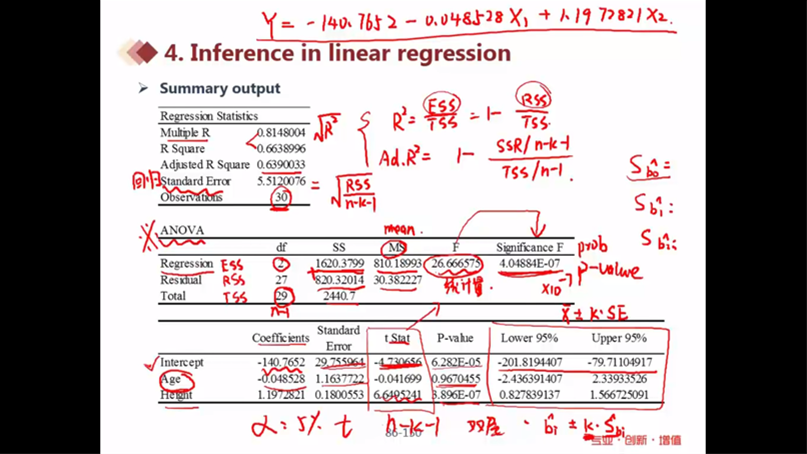 Y = -140.7652 - 0.048528 X₁ + 1.1972821 X₂.
4. Inference in linear regression
Summary output
Regression Statistics
Multiple R 0.8148004 √R²
R Square 0.6638996
Adjusted R Square 0.6390033
回归 Standard Error 5.5120076 = √RSS/n-k-1
Observations 30
R² = ESS/TSS = 1 - RSS/TSS.
Ad.R² = 1 - SSR/n-k-1 / TSS/n-1.
Sb̂₀ =
Sb̂₁ :
Sb̂ᵢ :
※ ANOVA mean.
df SS MS F Significance F prob
Regression ESS 2 1620.3799 810.18993 26.666575 4.04884E-07 p-value
Residual RSS 27 820.32014 30.382227 统计量 ×10⁻⁷
Total TSS 29 2440.7
n-1
x̄ ± k·SE
Coefficients Standard Error t Stat P-value Lower 95% Upper 95%
Intercept -140.7652 29.755964 -4.730656 6.282E-05 -201.8194407 -79.71104917
Age -0.048528 1.1637722 -0.041699 0.9670455 -2.436391407 2.33933526
Height 1.1972821 0.1800553 6.6495241 3.896E-07 0.827839137 1.566725091
α = 5% t n-k-1 双尾 · b̂ᵢ ± k·Sb̂ᵢ
专业·创新·增值